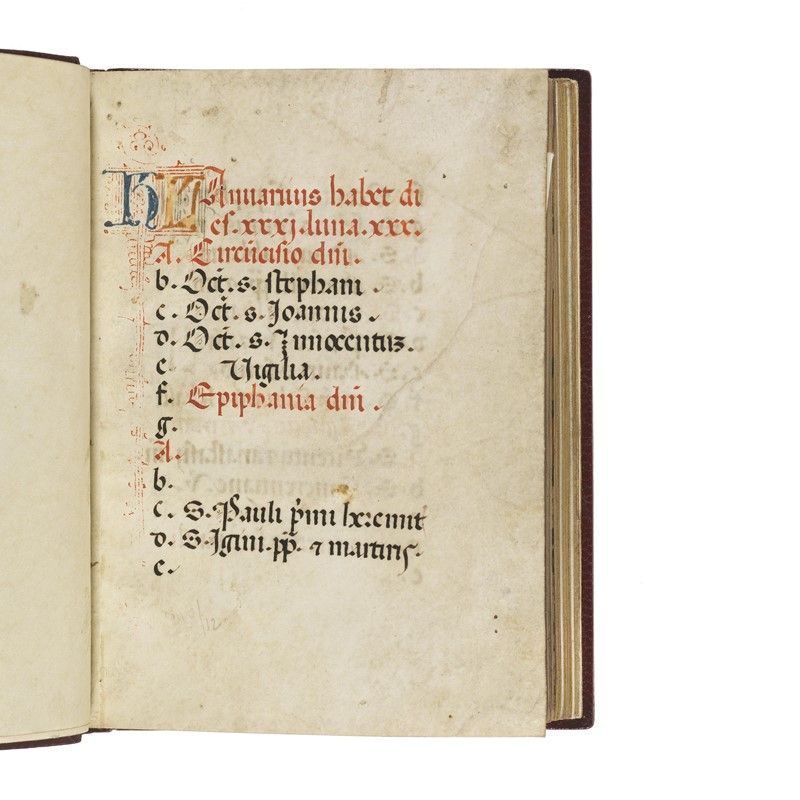 KL Januarius habet di
es.xxxj.luna.xxx.
A. Circũcisio dñi.
b. Oct̃. s. stephani.
c. Oct̃. s. Joannis.
d. Oct̃. s. Jnnocentuꝫ.
e. Vigilia.
f. Epiphania dñi.
g.
A.
b.
c. S. Pauli p̃mi heremit
d. S. Igini. pp̃. ⁊ martiris.
e.
/12